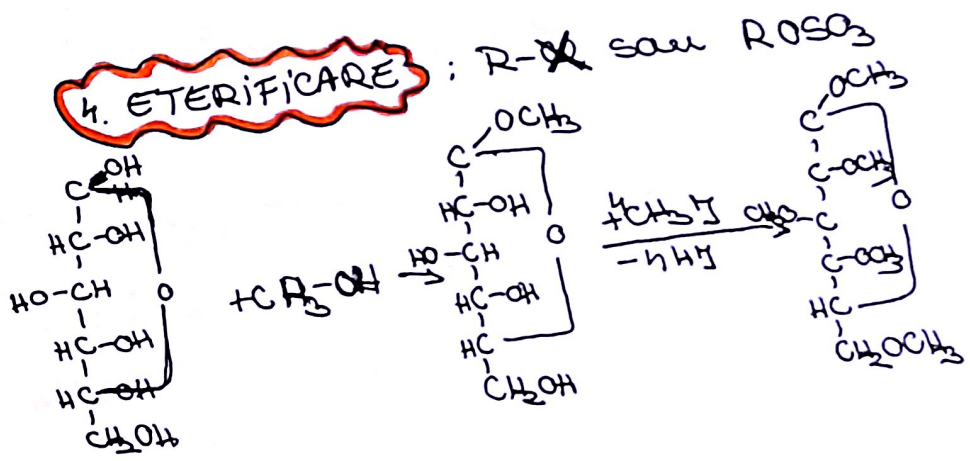 4. ETERIFICARE : R-OR sau ROSO3
OH
C H
HC-OH
HO-CH
HC-OH
HC-OH
CH2OH
O
+CH3-OH
OCH3
C
HC-OH
HO-CH
HC-OH
HC
CH2OH
O
+4CH3J
-4HJ
OCH3
C
C-OCH3
CH3O-C
C-OCH3
HC
CH2OCH3
O